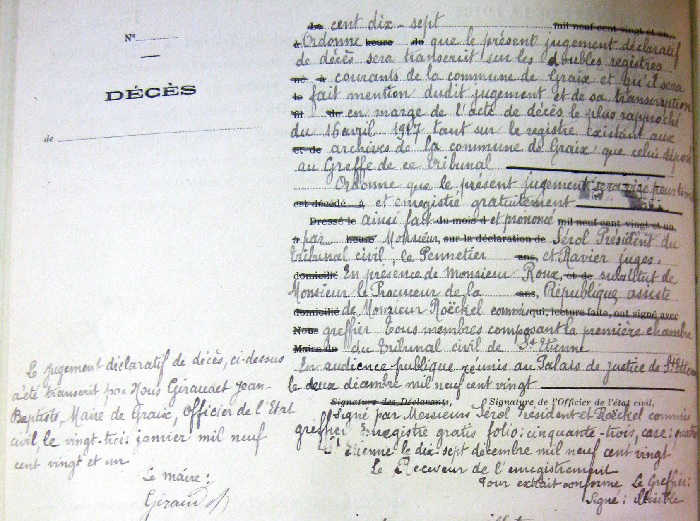 N°
DÉCÈS
de
cent dix-sept mil neuf cent vingt et un,
Ordonne que le présent jugement déclaratif
de décès sera transcrit sur les doubles registres
courants de la commune de Graix et qu'il sera
fait mention dudit jugement et de sa transcription
en marge de l'acte de décès le plus rapproché
du 16 avril 1917 tant sur le registre existant aux
et de archives de la commune de Graix que celui déposé
au Greffe de ce tribunal
Ordonne que le présent jugement sera visé pour timbre
est décédé et enregistré gratuitement
Dressé le ainsi fait du mois d et prononcé mil neuf cent vingt et un,
à par Monsieur, sur la déclaration de Sérol Président du
tribunal civil, le Pennetier ans, et Ravier juges.
domicilié En présence de Monsieur Roux, et de substitut de
Monsieur le Procureur de la ans, République assisté
domicilié de Monsieur Roëckel commis qui, lecture faite, ont signé avec
Nous greffier tous membres composant la première chambre
Maire de du tribunal civil de St Etienne
En audience publique réunis au Palais de justice de St Etienne
le deux décembre mil neuf cent vingt
Signature des Déclarants, Signature de l'Officier de l'état civil,
Signé par Messieurs Sérol Président et Roëckel commis
greffier Enregistré gratis folio: cinquante-trois, case:
St Etienne le dix-sept décembre mil neuf cent vingt
Le Receveur de l'enregistrement
Pour extrait conforme Le Greffier:
Signé: illisible
Le jugement déclaratif de décès, ci-dessus
a été transcrit par Nous Giraudet Jean-
Baptiste, Maire de Graix, Officier de l'Etat
civil, le vingt-trois janvier mil neuf
cent vingt et un
Le maire:
Giraudet